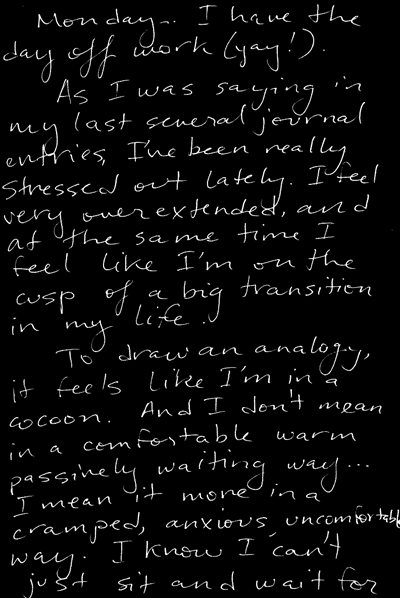 Monday... I have the
day off work (yay!).
As I was saying in
my last several journal
entries, I've been really
stressed out lately. I feel
very overextended, and
at the same time I
feel like I'm on the
cusp of a big transition
in my life.
To draw an analogy,
it feels like I'm in a
cocoon. And I don't mean
in a comfortable warm
passively waiting way...
I mean it more in a
cramped, anxious, uncomfortable
way. I know I can't
just sit and wait for